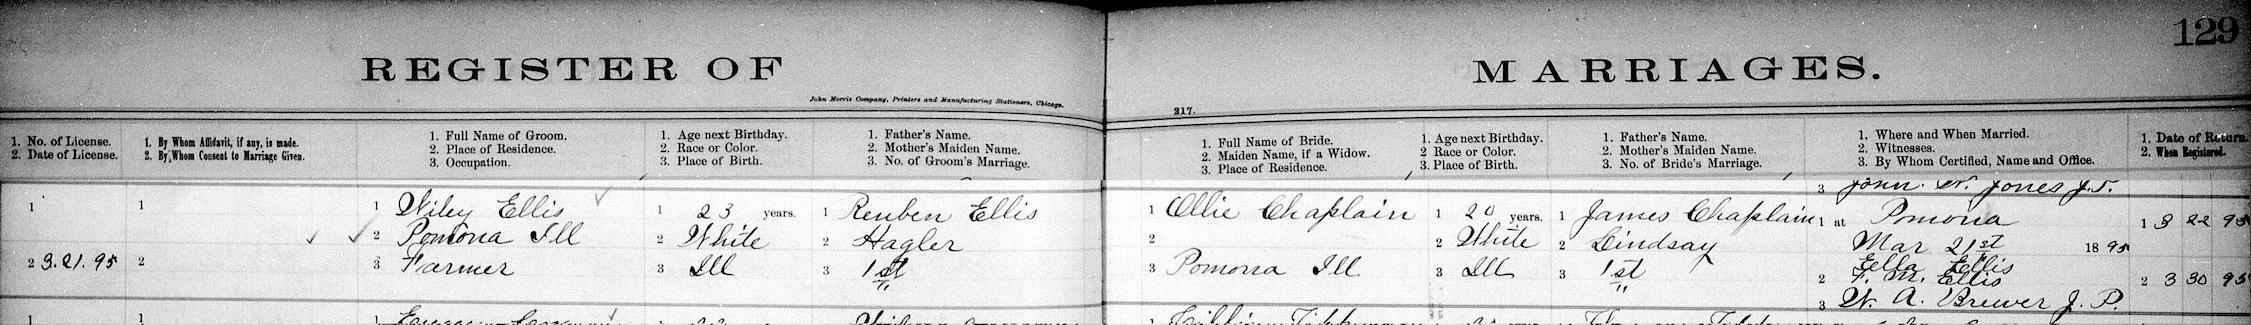 129
REGISTER OF MARRIAGES.
John Morris Company, Printers and Manufacturing Stationers, Chicago.
217.
1. No. of License.
2. Date of License.
1. By Whom Affidavit, if any, is made.
2. By Whom Consent to Marriage Given.
1. Full Name of Groom.
2. Place of Residence.
3. Occupation.
1. Age next Birthday.
2. Race or Color.
3. Place of Birth.
1. Father's Name.
2. Mother's Maiden Name.
3. No. of Groom's Marriage.
1. Full Name of Bride.
2. Maiden Name, if a Widow.
3. Place of Residence.
1. Age next Birthday.
2 Race or Color.
3. Place of Birth.
1. Father's Name.
2. Mother's Maiden Name.
3. No. of Bride's Marriage.
1. Where and When Married.
2. Witnesses.
3. By Whom Certified, Name and Office.
1. Date of Return.
2. When Registered.
3 John W. Jones J.P.
1
2 3.21.95
1
2
1 Wiley Ellis
2 Pomona Ill
3 Farmer
1 23 years.
2 White
3 Ill
1 Reuben Ellis
2 Hagler
3 1st "
1 Ollie Chaplain
2
3 Pomona Ill.
1 20 years.
2 White
3 Ill
1 James Chaplain
2 Lindsay
3 1st "
1 at Pomona
Mar 21st 1895
Ella Ellis
2 F. M. Ellis
3 W. A. Brewer J. P.
1 3 22 95
2 3 30 95
1
1
1
1